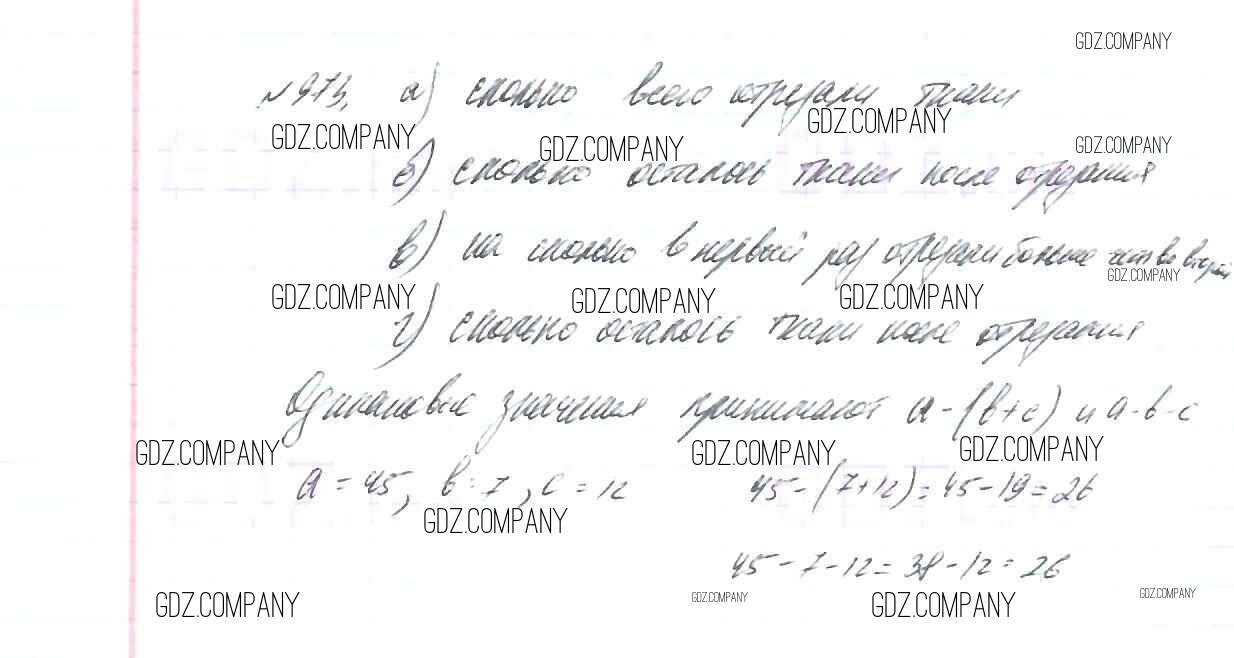 GDZ.COMPANY
№973. а) сколько всего отрезали ткани
GDZ.COMPANY GDZ.COMPANY GDZ.COMPANY GDZ.COMPANY
б) сколько осталось ткани после отрезания
в) на сколько в первый раз отрезали больше чем во второй
GDZ.COMPANY
GDZ.COMPANY GDZ.COMPANY GDZ.COMPANY
г) сколько осталось ткани после отрезания
Одинаковые значения принимают a-(b+c) и a-b-c
GDZ.COMPANY GDZ.COMPANY GDZ.COMPANY
a = 45, b = 7, c = 12 45-(7+12)=45-19=26
GDZ.COMPANY
45-7-12=38-12=26
GDZ.COMPANY GDZ.COMPANY GDZ.COMPANY GDZ.COMPANY